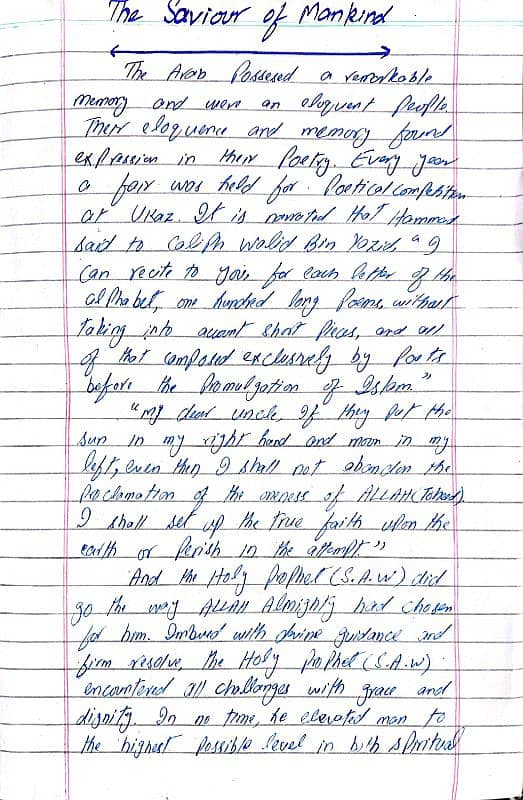 The Saviour of Mankind
The Arab Possesed a remarkable
memory and were an eloquent People.
Their eloquence and memory found
expression in their Poetry. Every year
a fair was held for Poetical Competition
at Ukaz. It is narrated that Hammad
said to Caliph Walid Bin Yazid, "I
Can recite to you, for each letter of the
alphabet, one hundred long Poems, without
taking into account short Pieces, and all
of that composed exclusively by Poets
before the Promulgation of Islam."
"my dear uncle, If they put the
sun in my right hand and moon in my
left, even then I shall not abandon the
Proclamation of the oneness of ALLAH(Toheed).
I shall set up the true faith upon the
earth or Perish in the attempt."
And the Holy Prophet (S.A.W) did
go the way ALLAH Almighty had chosen
for him. Imbued with devine guidance and
firm resolve, the Holy Prophet (S.A.W)
encountered all challanges with grace and
dignity. In no time, he elevated man to
the highest Possible level in both spiritual